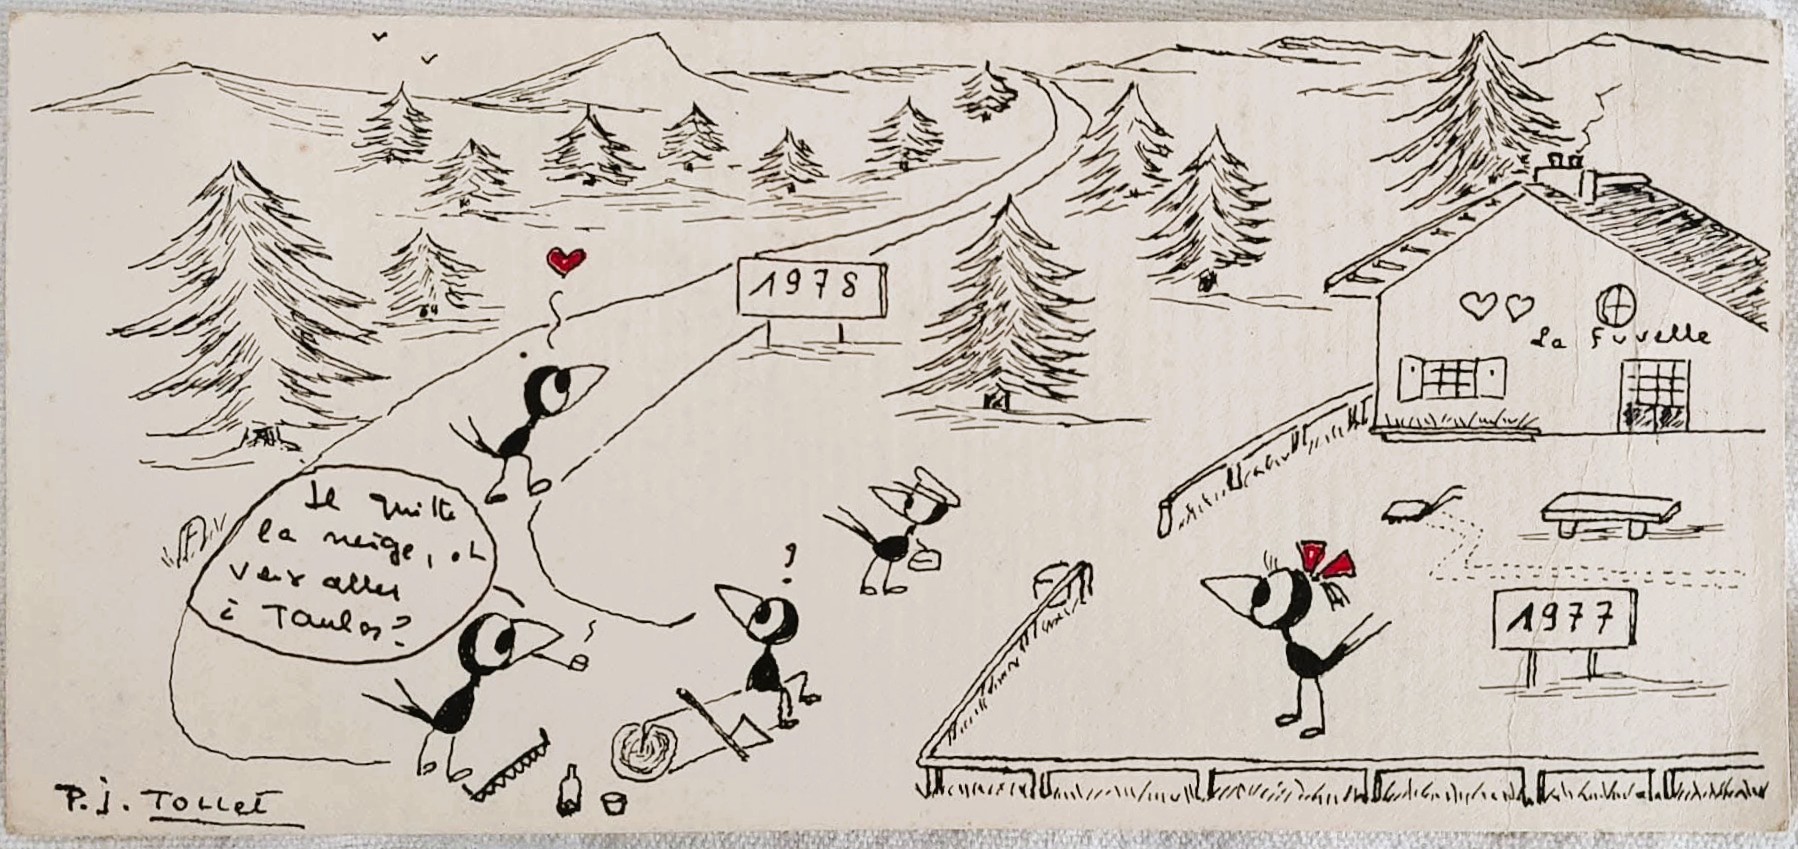 1978
La Fuvelle
Il quitte
la neige, et
veux aller
à Toulos?
1977
P.J. TOLLET